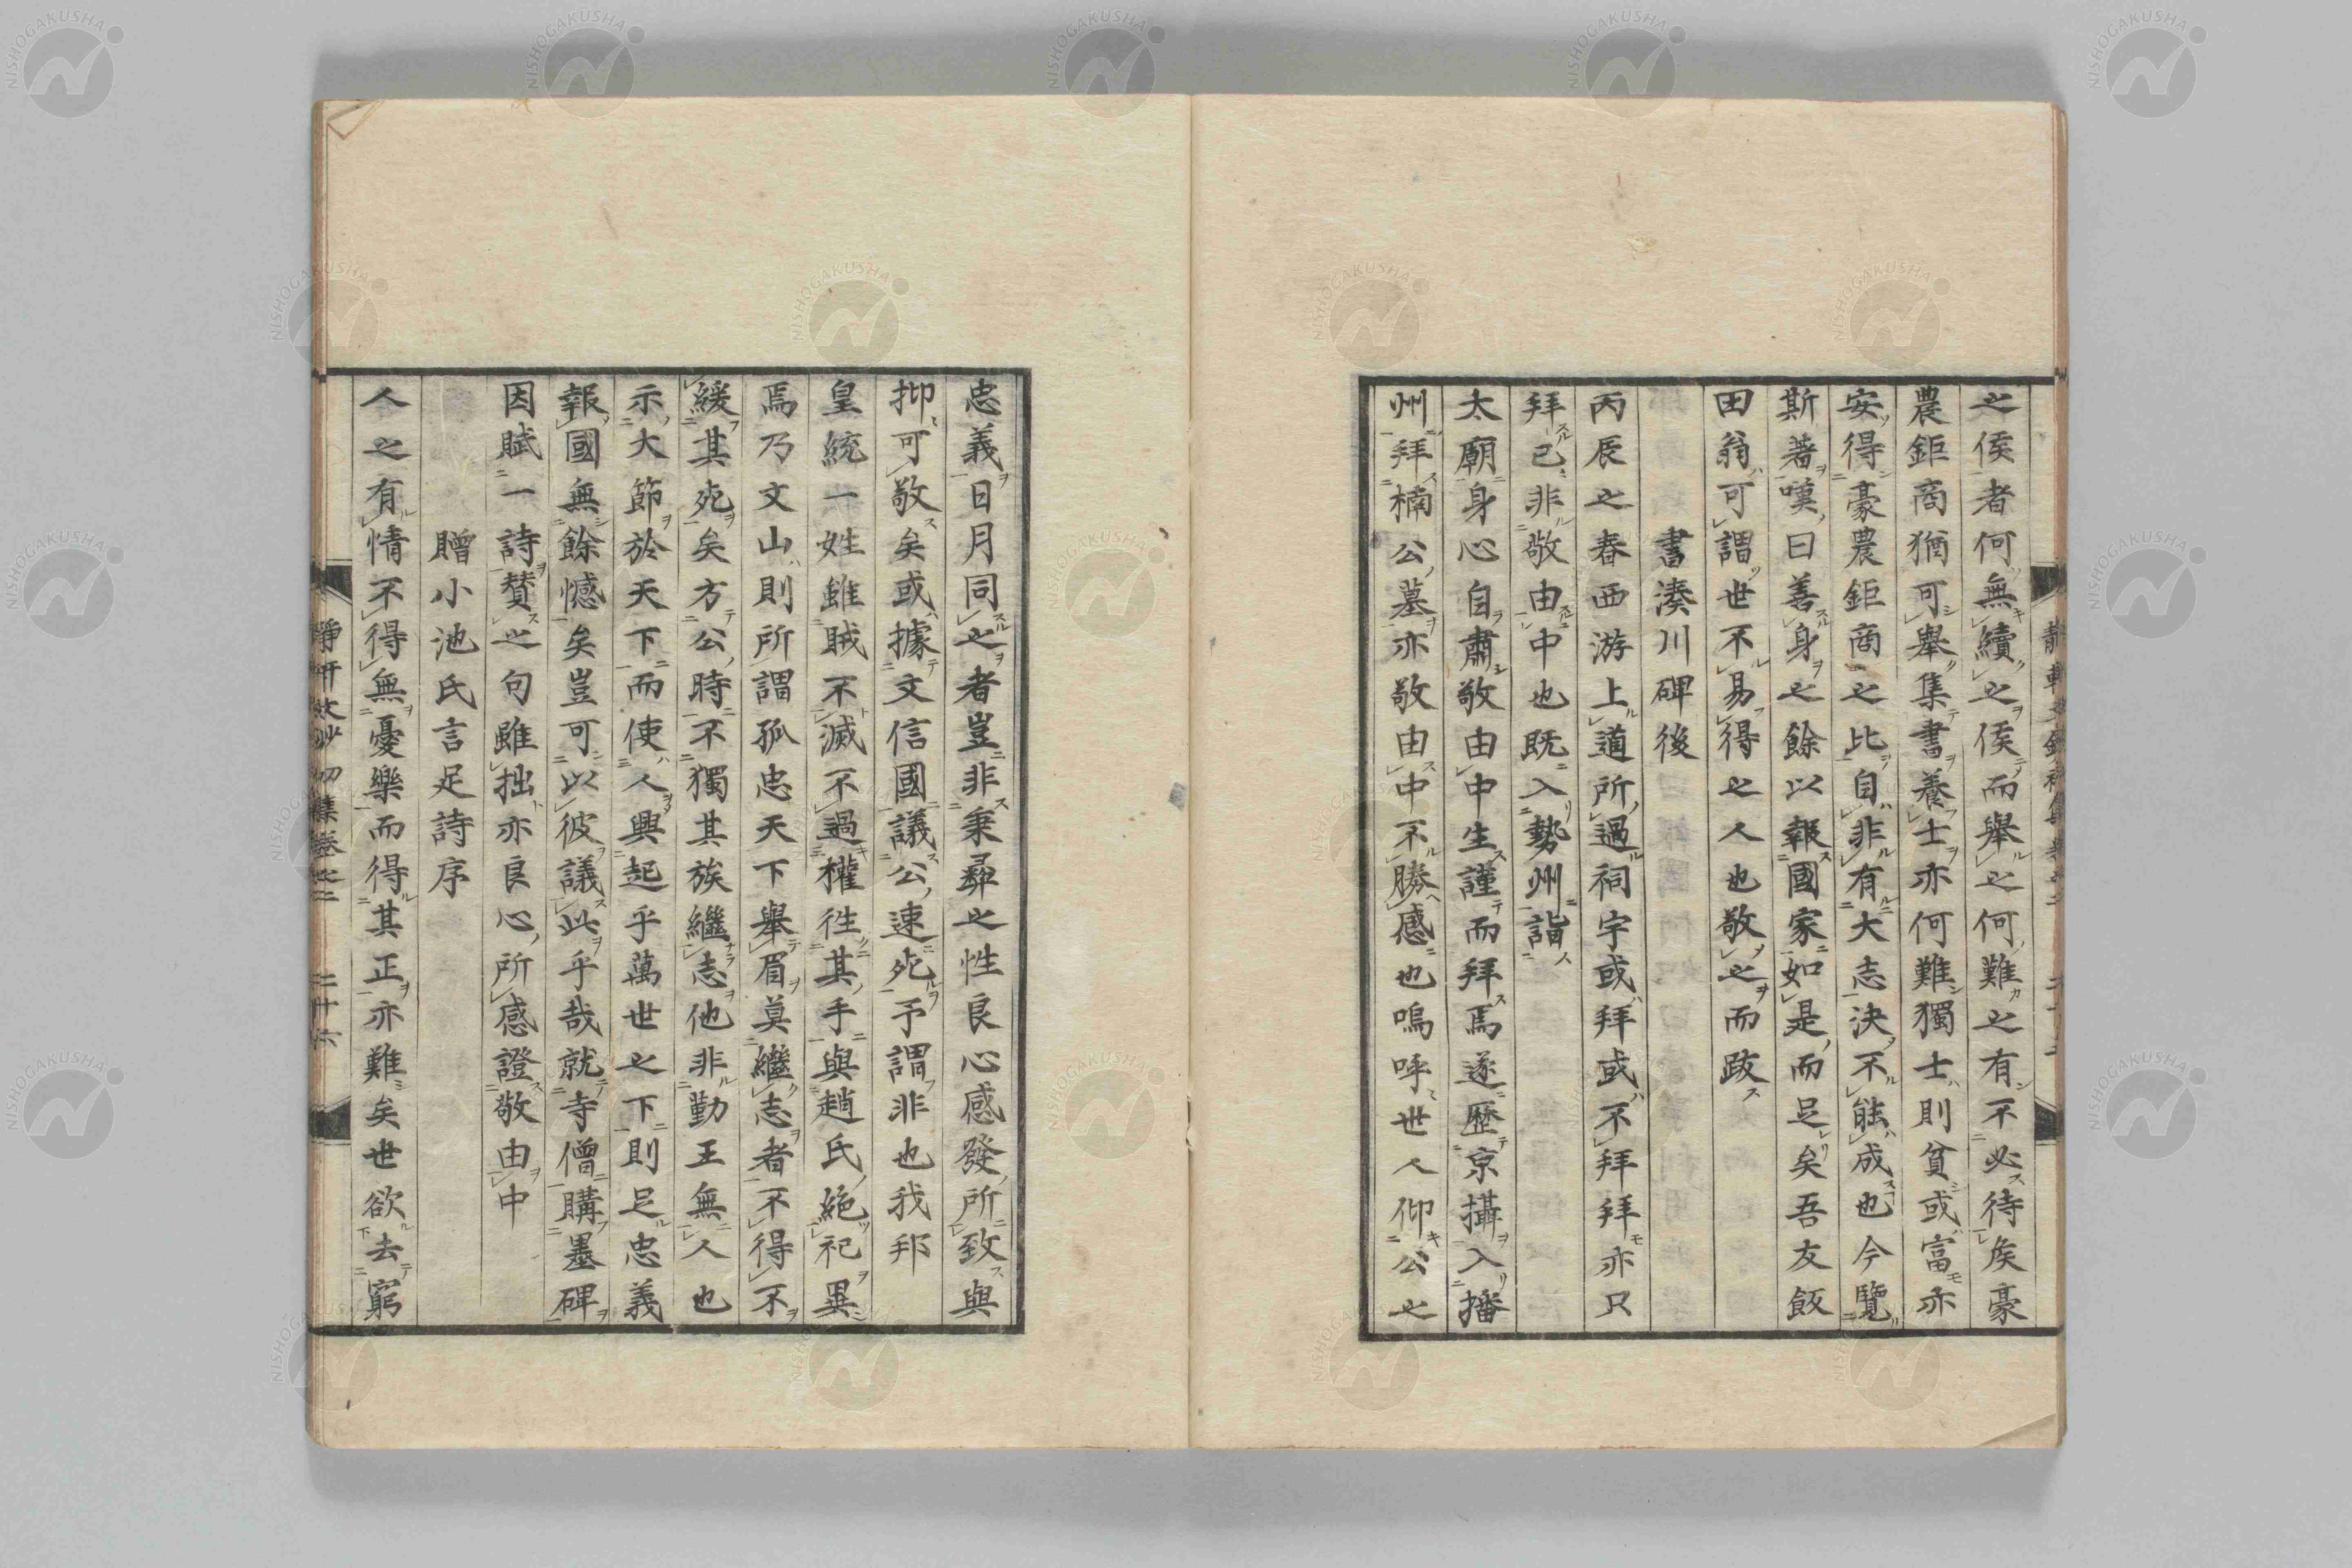 之侯者何無續之侯而舉之何難之有不必待侯豪
農鉅商猶可舉集書養士亦何難獨士則貧或富亦
安得豪農鉅商之比自非有大志決不能成也今覽
斯著嘆曰善身之餘以報國家如是而足矣吾友飯
田翁可謂世不易得之人也敬之而跋
書湊川碑後
丙辰之春西游上道所過祠宇或拜或不拜拜亦只
拜已非敬由中也既入勢州詣
太廟身心自肅敬由中生謹而拜焉遂歷京攝入播
州拜楠公墓亦敬由中不勝感也嗚呼世人仰公之
忠義日月同之者豈非秉彝之性良心感發所致與
抑可敬矣或據文信國議公速死予謂非也我邦
皇統一姓雖賊不滅不過權徃其手與趙氏絕祀異
焉乃文山則所謂孤忠天下舉眉莫繼志者不得不
緩其死矣方公時不獨其族繼志他非勤王無人也
示大節於天下而使人興起乎萬世之下則足忠義
報國無餘憾矣豈可以彼議此乎哉就寺僧購墨碑
因賦一詩贊之句雖拙亦良心所感證敬由中
贈小池氏言足詩序
人之有情不得無憂樂而得其正亦難矣世欲去窮
靜軒文鈔初集卷之二 二十六
NISHOGAKUSHA